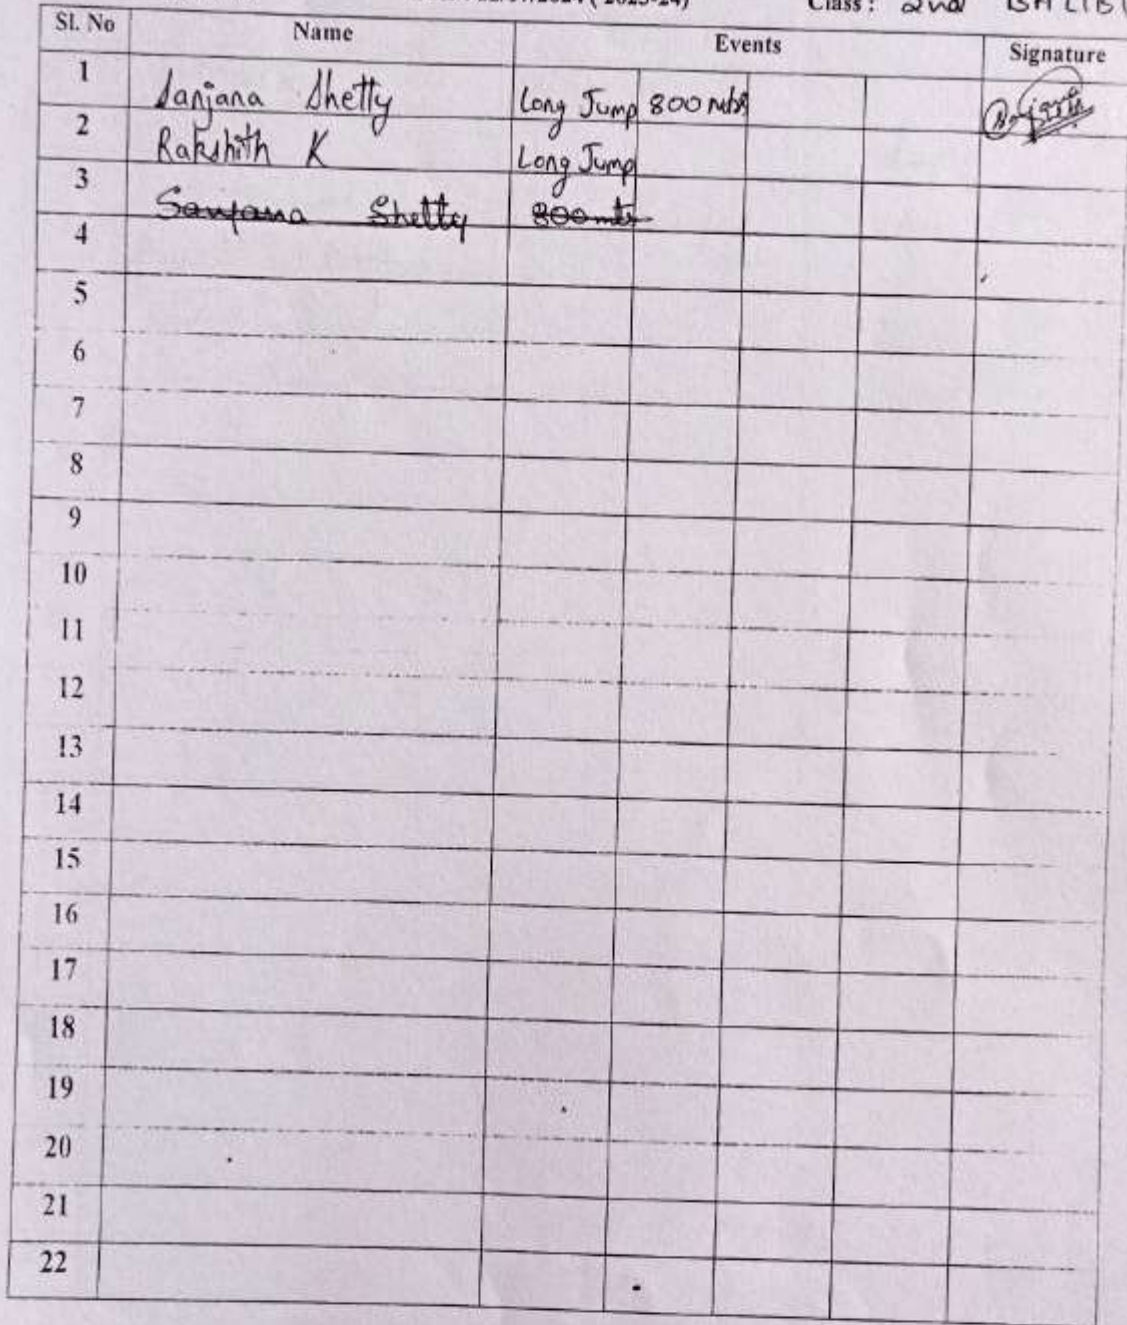 2023-24)
Class: 2nd BA
Sl. No Name Events Signature
1 Sanjana Shetty Long Jump 800 mtrs
2 Rakshith K Long Jump
3 Sanjana Shetty 800 mtr
4
5
6
7
8
9
10
11
12
13
14
15
16
17
18
19
20
21
22